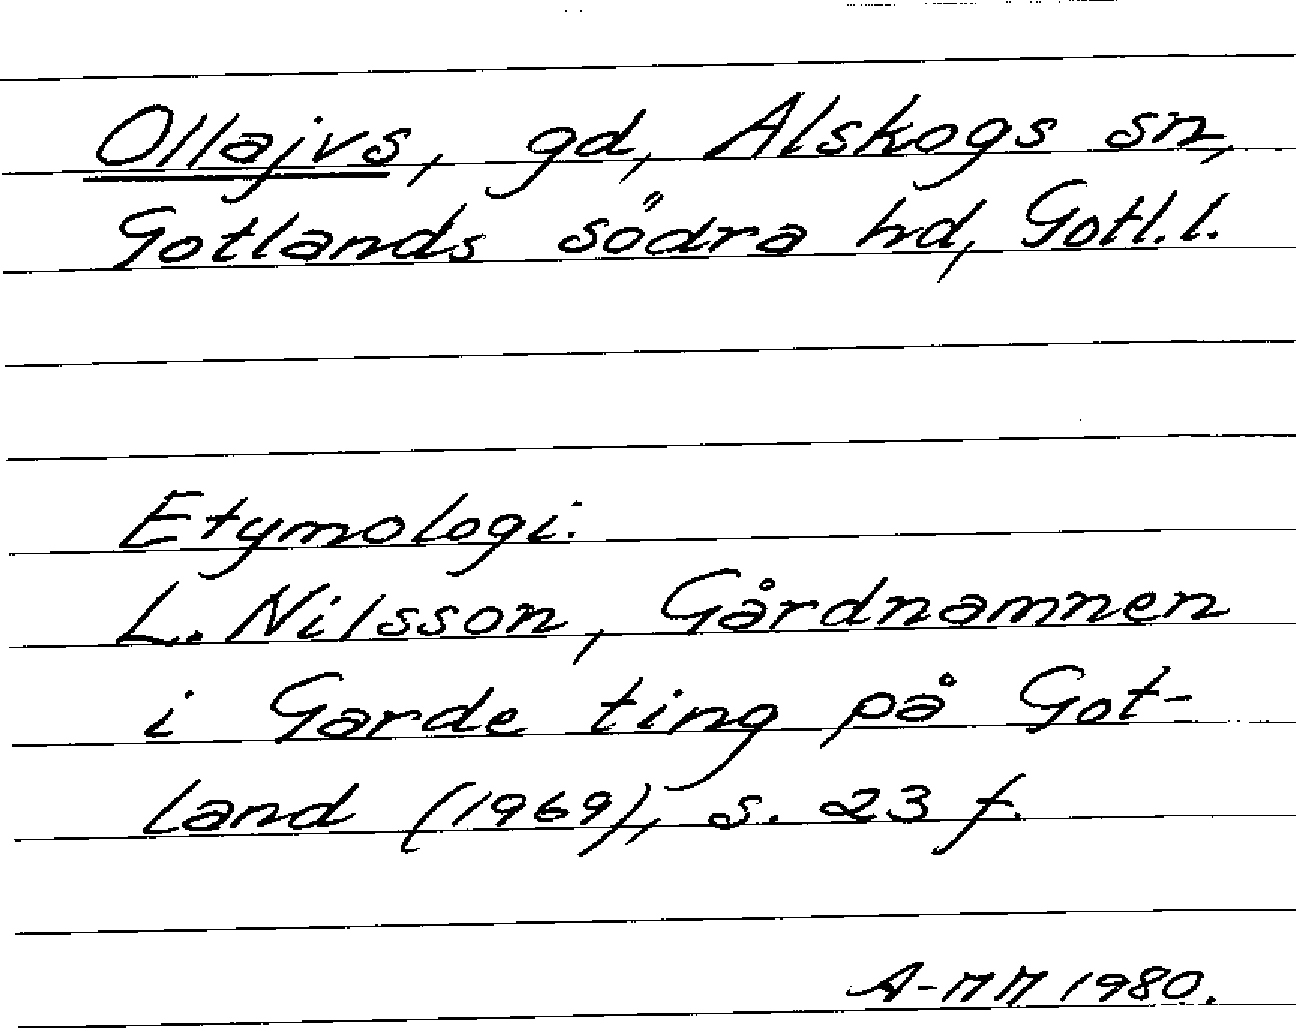 Ollajvs, gd, Alskogs sn,
Gotlands södra hd, Gotl.l.
Etymologi:
L. Nilsson, Gårdnamnen
i Garde ting på Got-
land (1969), s. 23 f.
A-MM 1980.